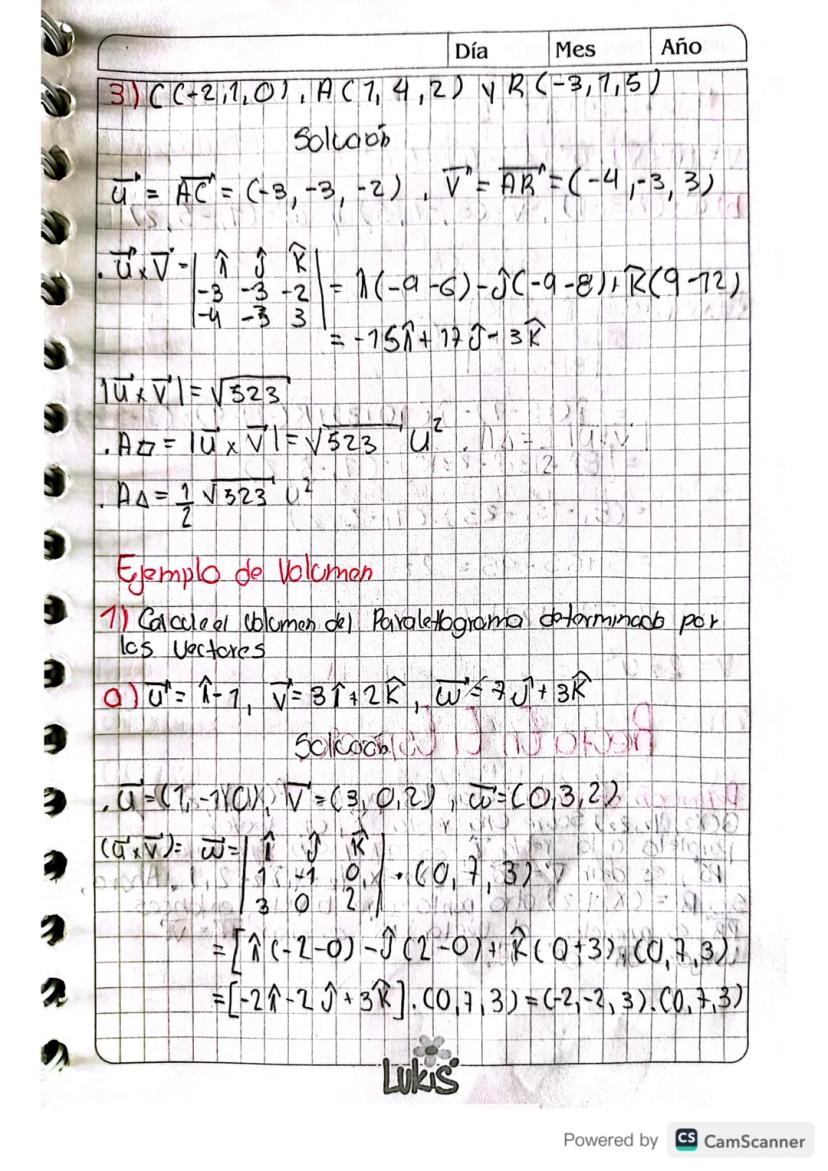 Día Mes Año
3) C(-2,1,0), A(1,4,2) y R(-3,1,5)
Solución
u⃗ = AC⃗ = (-3,-3,-2), V⃗ = AR⃗ = (-4,-3,3)
. u⃗ x V⃗ = | î ĵ k̂ | = î(-9-6) - ĵ(-9-8) + k̂(9-12)
| -3 -3 -2 |
| -4 -3 3 |
= -15î + 17ĵ - 3k̂
|u⃗ x V⃗| = √523
. A▱ = |u⃗ x V⃗| = √523 u²
. A△ = 1/2 √523 u²
Ejemplo de Volumen
1) Calcule el Volumen del Paralelograma determinado por
los vectores
a) u⃗ = î-1, V⃗ = 3î+2k̂, w⃗ = 7ĵ+3k̂
Solución
. u⃗ = (1,-1,0), V⃗ = (3,0,2), w⃗ = (0,3,2)
(u⃗ x V⃗) = w⃗ = | î ĵ k̂ |
| 1 -1 0 | . (0,7,3)
| 3 0 2 |
= [î(-2-0) - ĵ(2-0) + k̂(0+3). (0,7,3)
= [-2î - 2ĵ + 3k̂] . (0,7,3) = (-2,-2,3) . (0,7,3)
Lukis
Powered by CS CamScanner